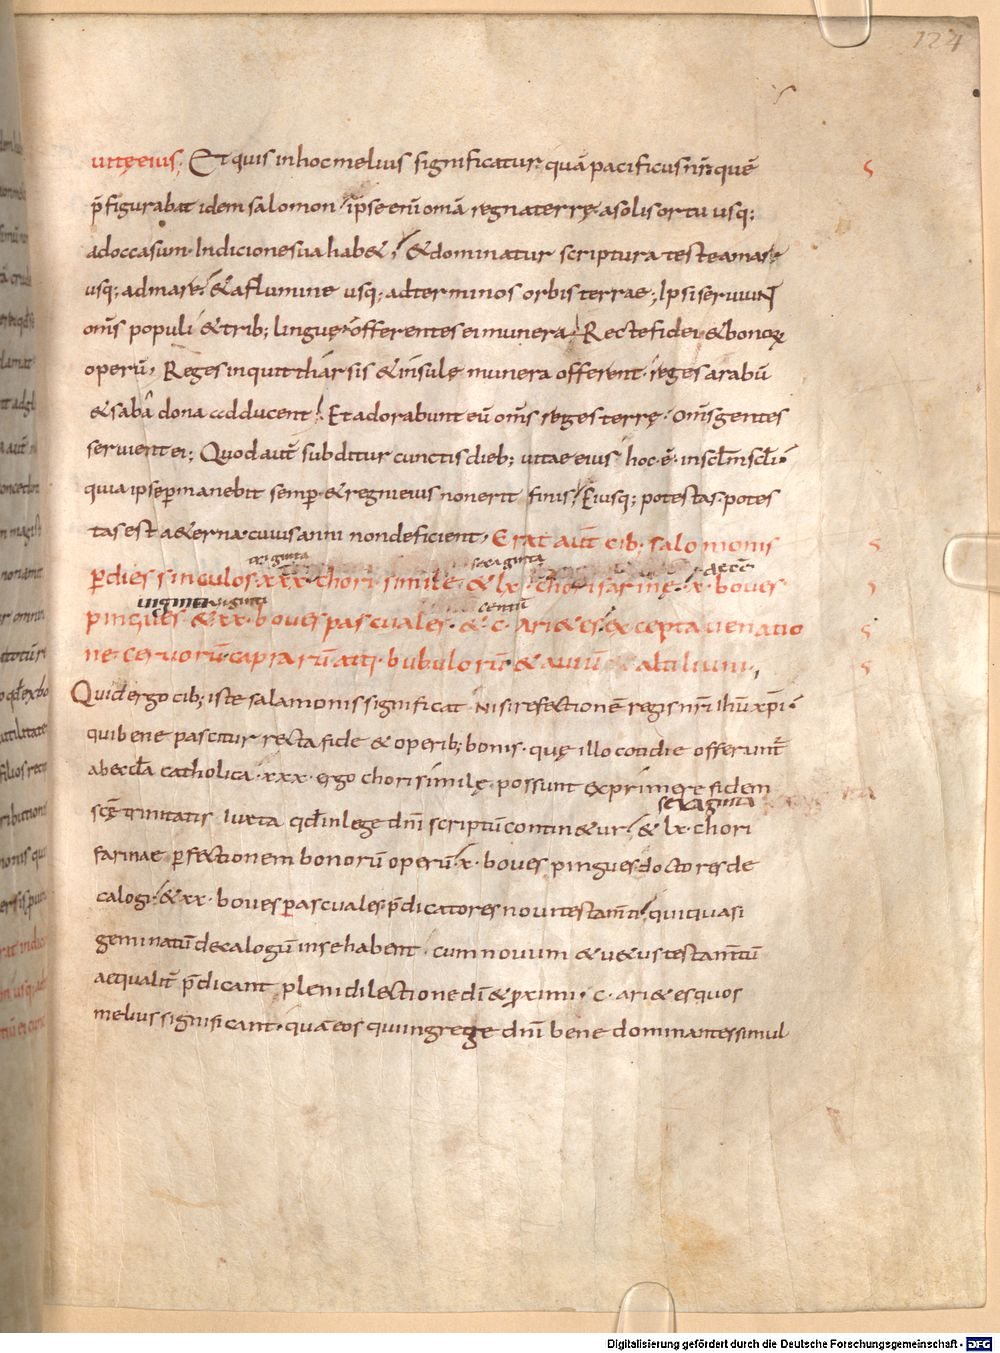 124
uitę eius; Et quis in hoc melius significatur quā pacificus nr̄ quē
p̄figurabat idem salomon; ipse eni om̄a regna terrę a solis ortu usq;
ad occasum. In dicione sua hab&; & dominatur scriptura teste a mari
usq; ad mare; & a flumine usq; ad terminos orbis terrae; Ipsi seruiunt
om̄s populi & trib; linguę; offerentes ei munera; Recte fidei & bonoꝝ
operū, Reges inquit tharsis & insulę munera offerent. reges arabū
& saba dona adducent; Et adorabunt eū om̄s reges terrę. Om̄s gentes
seruient ei; Quod aut̄ subditur cunctis dieb; uitae eius hoc .ē. in scl̄m scl̄i.
quia ipse ꝑmanebit semꝑ & regni eius non erit finis; Eiusq; potestas. potes
tas est a&erna. cuius anni non deficient; Erat aut̄ cib; salomonis
triginta sexaginta decē
ꝑ dies singulos. xxx. chori similę. & lx. chori farinę. x. boues
uiginti uiginti centū
pingues. & xx. boues pascuales. & .c. ari&es. excepta uenatio
ne. ceruorū. caprarū atq. bubulorū & auiū altilium;
Quid ergo cib; iste salamonis significat. Nisi refectionē regis nr̄i ih̄u xp̄i.
qui bene pascitur recta fide & operib; bonis. quę illo cotidie offerunt̄
ab eccl̄a catholica. xxx. ergo chori similę possunt exprimere fidem
sexaginta
scē trinitatis Iuxta qd̄ in lege dn̄i scriptū contin&ur; & lx. chori
farinae ꝑfectionem bonorū operū. x. boues pingues. doctores de
calogi; & xx. boues pascuales p̄dicatores noui testam̄ti; qui quasi
geminatū decalogū in se habent. cum nouum & u&us testam̄tū
aequalit̄ p̄dicant pleni dilectione dī & ꝓximi. c. ari&es quos
melius significant. quā eos qui in grege dn̄i bene dominantes simul
Digitalisierung gefördert durch die Deutsche Forschungsgemeinschaft - DFG